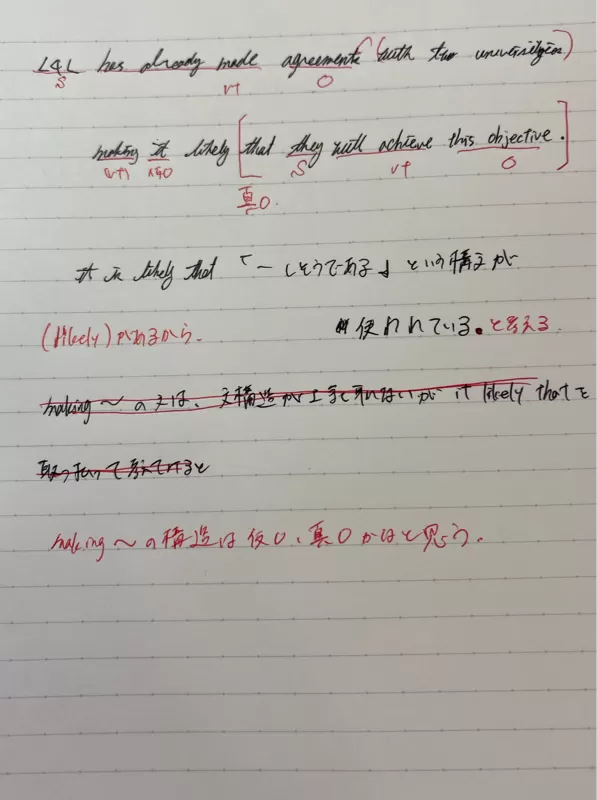 L4L has already made agreements (with two universities)
S vt O
making it likely [that they will achieve this objective.]
(vt) 仮O S vt O
真O.
It is likely that 「〜しそうである」という構文が
(likely)があるから. 使われている。と考える
making 〜 の文は、文構造が上手く取れないが it likely that を
取っ て考えていると
making 〜 の構造は仮O、真Oかなと思う.